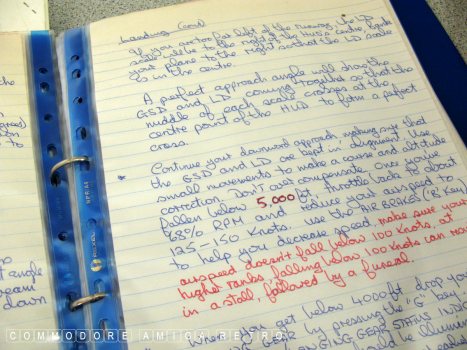 Landing (cont)
If you are too far left of the runway, the LD
scale will be to the right of the HUD's centre, bank
your plane to the right so that the LD scale
is in the centre.
A perfect approach angle will show the
GSD and LD coming together so that the
middle of each scale crosses at the
centre point of the HUD to form a perfect
cross.
* Continue your downward approach making sure that
the GSD and LD are kept in alignment. Use
small movements to make a course and altitude
correction. Don't over compensate. Once you've
fallen below 5,000 ft, throttle back to about
68% RPM and reduce your airspeed to
125-150 knots. use the AIR BRAKES ('B' key)
to help you decrease speed, make sure your
airspeed doesn't fall below 100 knots, at
higher ranks falling below 100 knots can result
in a stall, followed by a funeral.
When you get below 4000ft drop your
by pressing the "G" key
GEAR STATUS INDI
should be illumin
the
to
at angle
beam
down
COMMODORE AMIGA RETRO